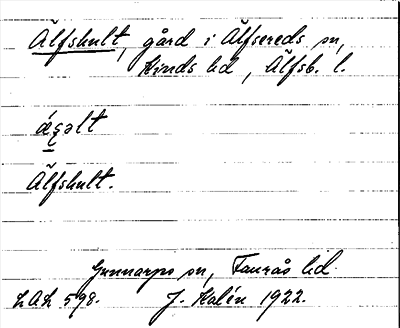 Älfshult, gård i Älfsereds sn,
Kinds hd, Älfsb. l.
Älfshult.
Gunnarps sn, Faurås hd.
LAL 598. J. Kalén 1922.